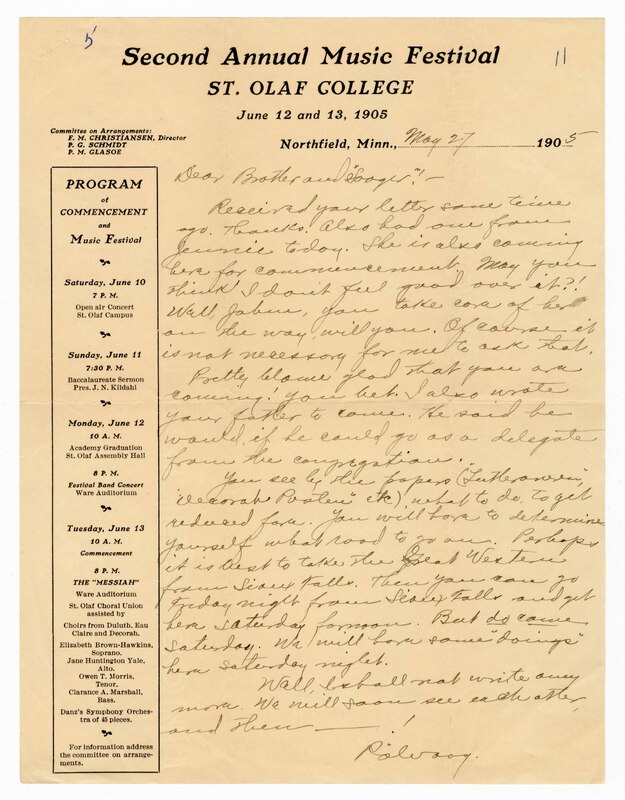 5
11
Second Annual Music Festival
ST. OLAF COLLEGE
June 12 and 13, 1905
Committee on Arrangements:
F. M. CHRISTIANSEN, Director
P. G. SCHMIDT
P. M. GLASOE
Northfield, Minn., May 27 1905
PROGRAM
of
COMMENCEMENT
and
Music Festival
Saturday, June 10
7 P. M.
Open air Concert
St. Olaf Campus
Sunday, June 11
7:30 P. M.
Baccalaureate Sermon
Pres. J. N. Kildahl
Monday, June 12
10 A. M.
Academy Graduation
St. Olaf Assembly Hall
8 P. M.
Festival Band Concert
Ware Auditorium
Tuesday, June 13
10 A. M.
Commencement
8 P. M.
THE "MESSIAH"
Ware Auditorium
St. Olaf Choral Union
assisted by
Choirs from Duluth, Eau
Claire and Decorah.
Elizabeth Brown-Hawkins,
Soprano.
Jane Huntington Yale,
Alto.
Owen T. Morris,
Tenor.
Clarance A. Marshall,
Bass.
Danz's Symphony Orches-
tra of 45 pieces.
For information address
the committee on arrange-
ments.
Dear Brother and !—
Received your letter some time
ago. Thanks. Also had one from
Jennie today. She is also coming
here for commencement. May you
think I don't feel good over it?!
Well, you take care of her
on the way, will you. Of course it
is not necessary for me to ask that.
Pretty blame glad that you are
coming! you bet. I also wrote
your father to come. He said he
would, if he could go as a delegate
from the congregation.
You see by the papers ("Lutheraneren",
"Decorah Posten" etc), what to do to get
reduced fare. You will have to determine
yourself what road to go on. Perhaps
it is best to take the Great Western
from Sioux Falls. Then you can go
Friday night from Sioux Falls and get
here Saturday forenoon. But do come
Saturday. We will have some "doings"
here Saturday night.
Well, I shall not write any
more. We will soon see each other,
and then — !
Rölvaag.